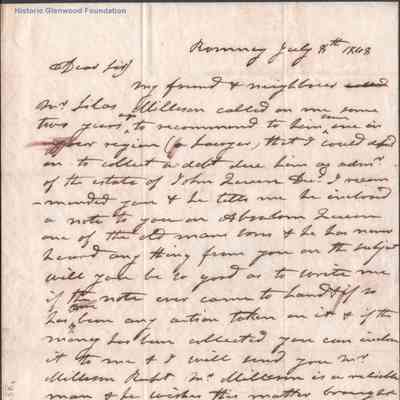 Historic Glenwood Foundation
Romney July 8th 1848
Dear Sir
My friend & neighbour called
Mr Silas Milleson called on me some
two years ago to recommend to him some one in
your region (a Lawyer) that I could depend
on to collect a debt due him as admr.
of the estate of John Queen Decd. I recom
-manded you & he tells me he inclosed
a note to you on Absalom Queen
one of the old mans sons & he has never
heard any thing from you on the subject
will you be so good as to write me
if the note ever came to hand & if so
has been any action taken on it & if the
money has been collected you can inclose
it to me & I will send you Mr
Milleson Rect. Mr Milleson is a reliable
man & he wishes this matter brought